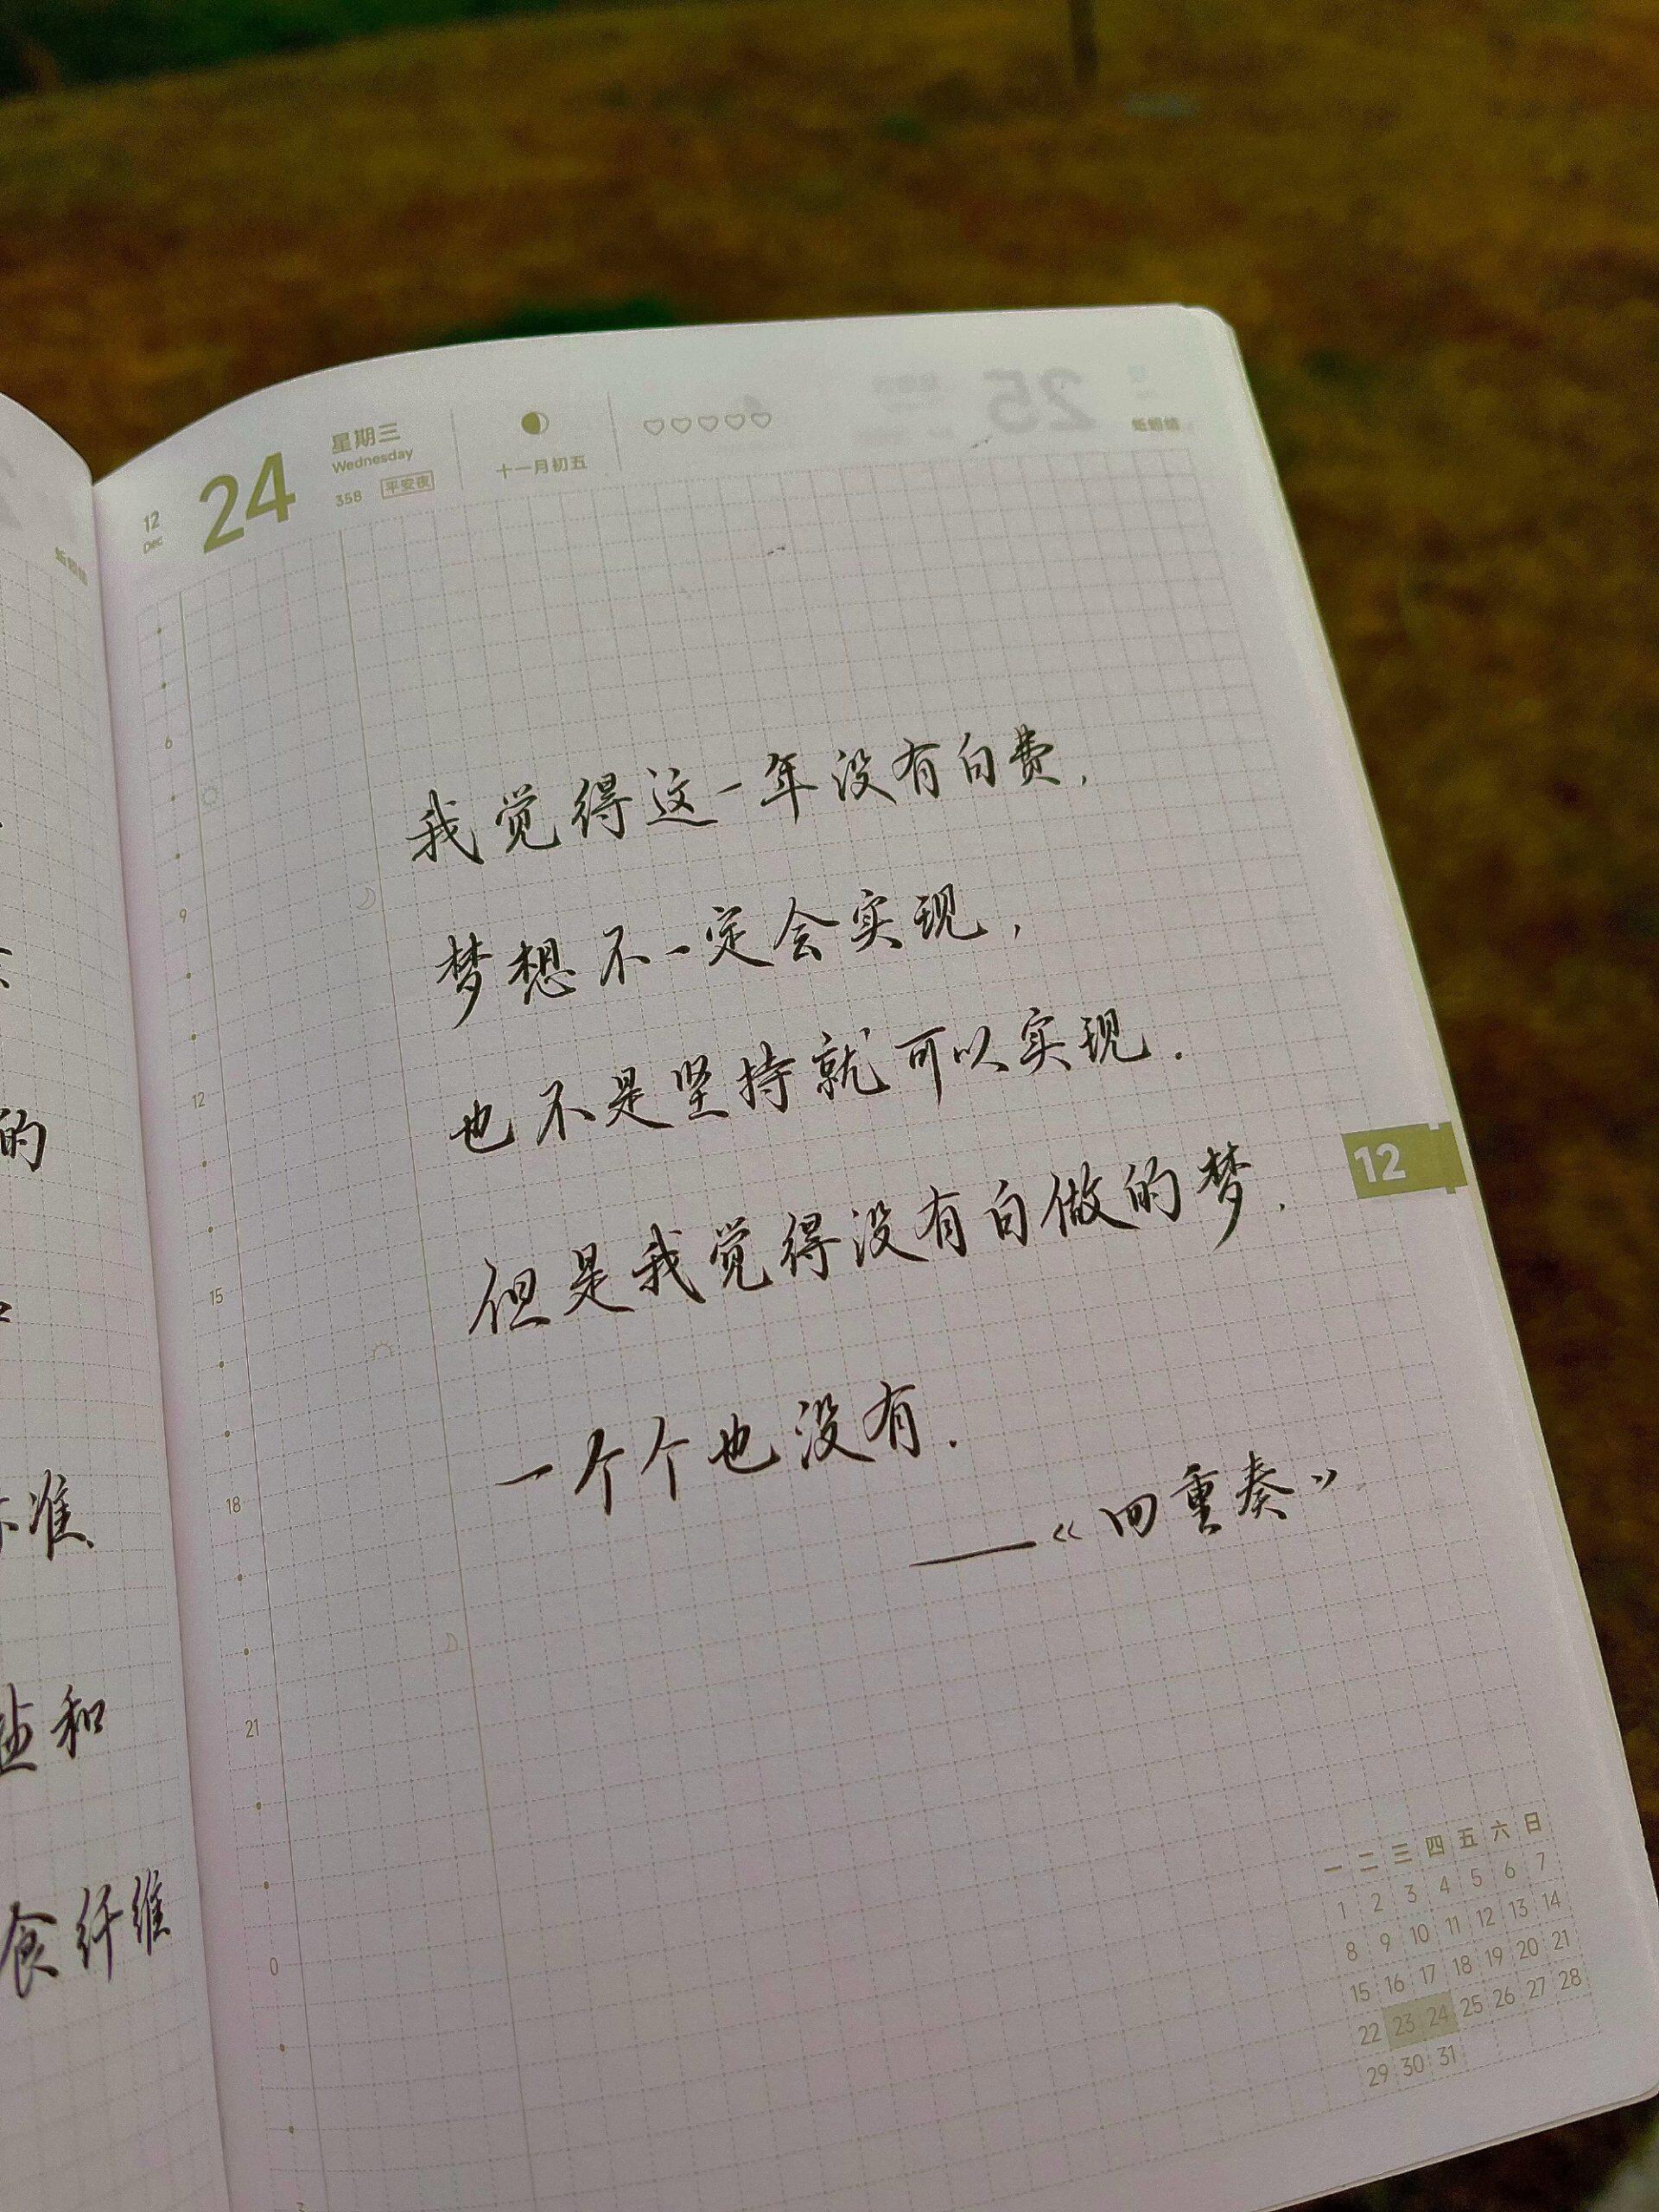 的
准
盐和
食纤维
12
Dec
24
星期三
Wednesday
358 平安夜
十一月初五
我觉得这一年没有白费,
梦想不一定会实现,
也不是坚持就可以实现.
但是我觉得没有白做的梦.
一个个也没有.
——《四重奏》
6
9
12
15
18
21
0
3
12
一 二 三 四 五 六 日
1 2 3 4 5 6 7
8 9 10 11 12 13 14
15 16 17 18 19 20 21
22 23 24 25 26 27 28
29 30 31